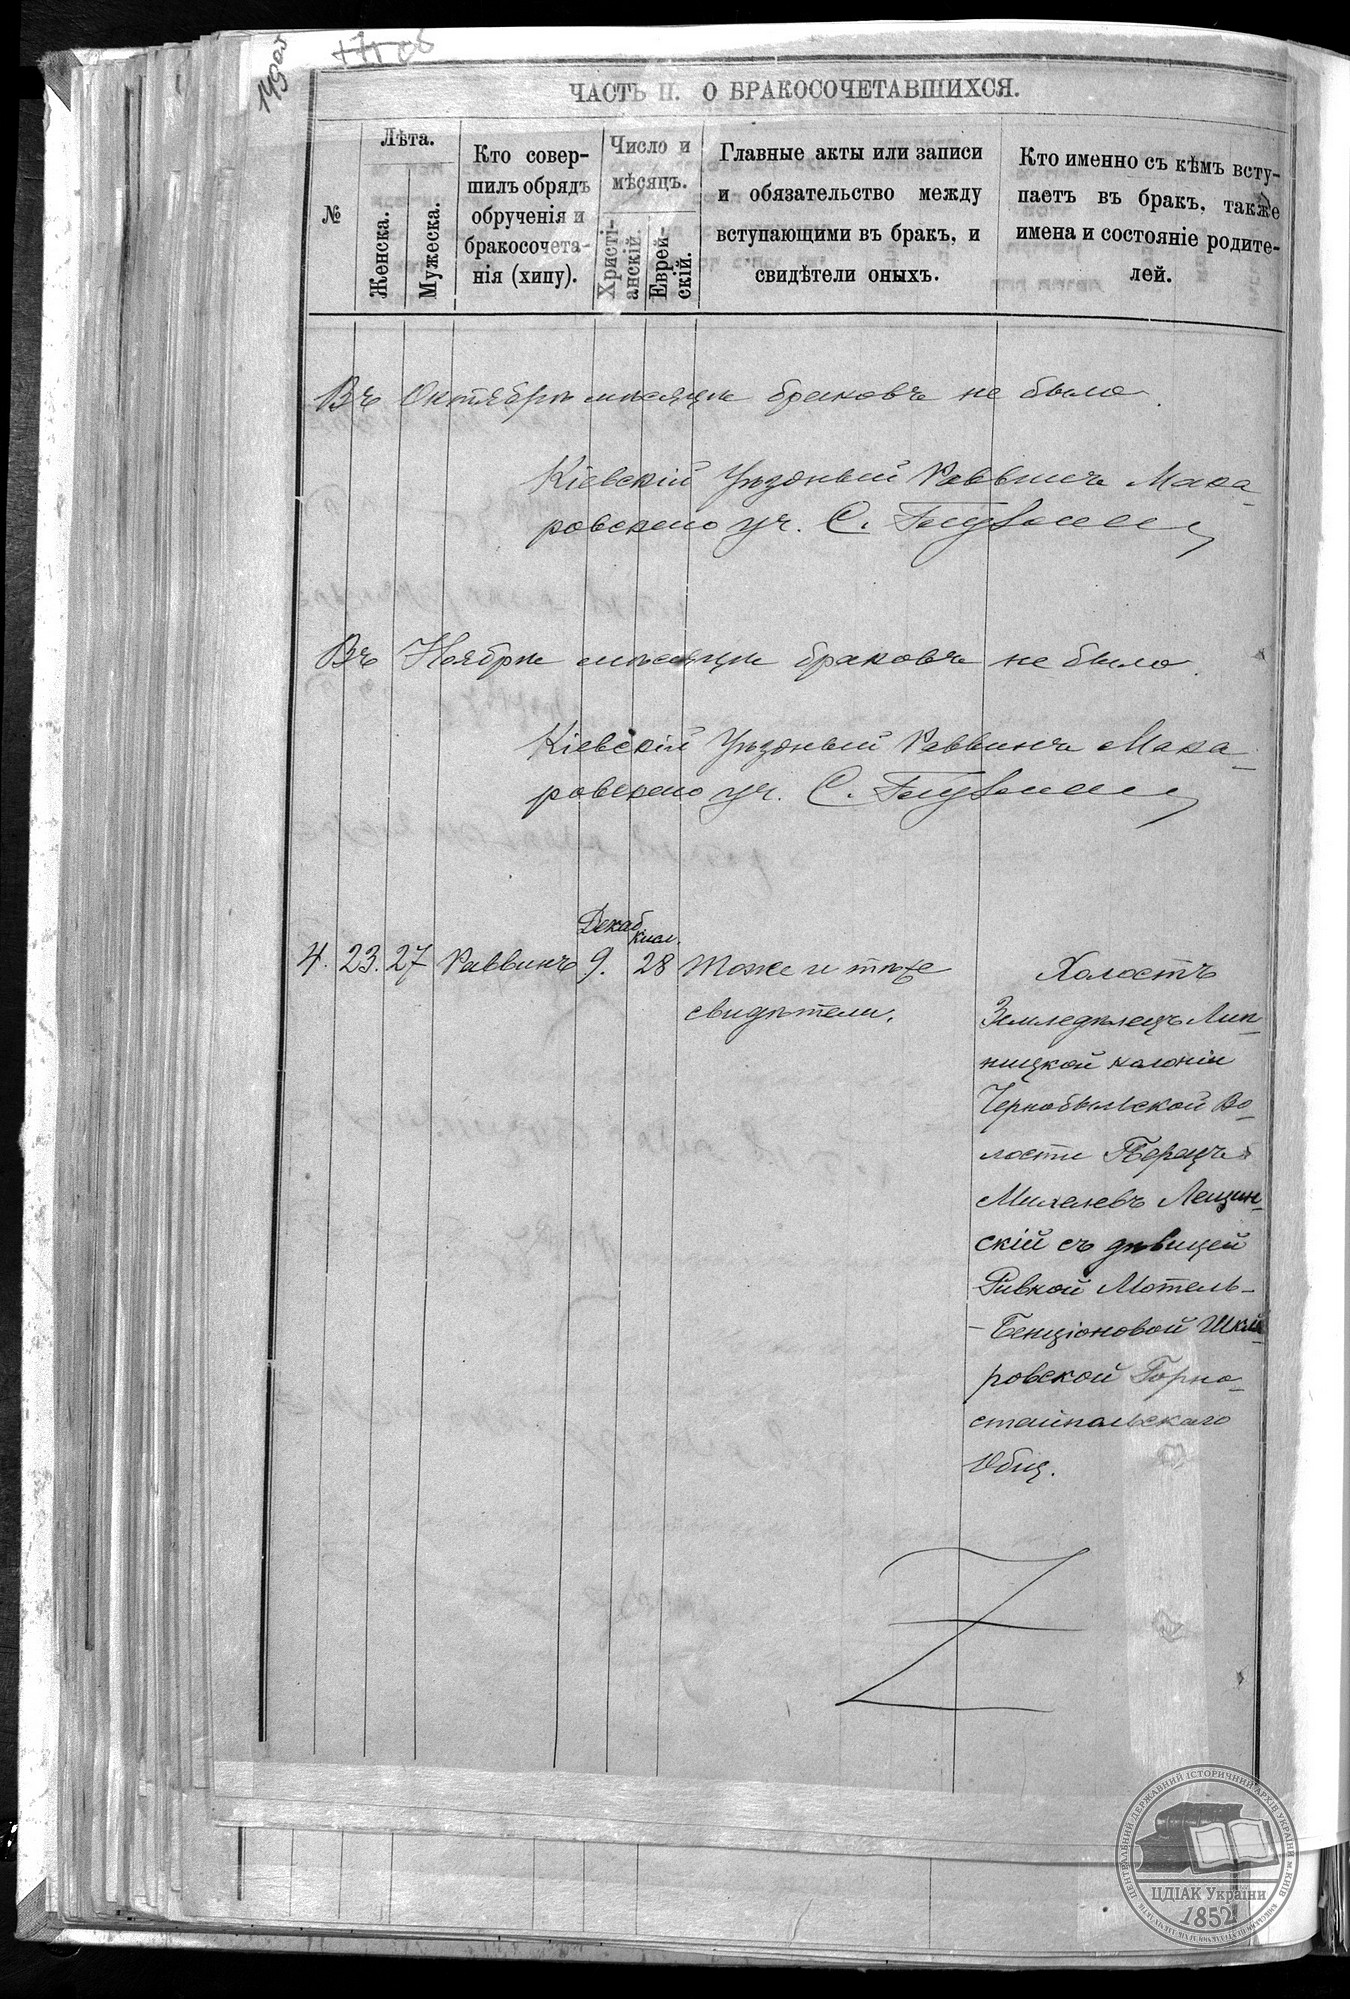 1190об
ЧАСТЬ II. О БРАКОСОЧЕТАВШИХСЯ.
№
Лѣта.
Женска.
Мужеска.
Кто совер-
шилъ обрядъ
обрученія и
бракосочета-
нія (хипу).
Число и
мѣсяцъ.
Христі-
анскій.
Еврей-
скій.
Главные акты или записи
и обязательство между
вступающими въ брак, и
свидѣтели оныхъ.
Кто именно съ кѣмъ всту-
паетъ въ бракъ, также
имена и состояніе родите-
лей.
Въ Октябрѣ мѣсяцѣ браковъ не было.
Кіевскій Уѣздный Раввинъ Мака-
ровскаго уч. С.
Въ Ноябрѣ мѣсяцѣ браковъ не было.
Кіевскій Уѣздный Раввинъ Мака-
ровскаго уч. С.
Декаб.
кисл.
4. 23. 27 Раввинъ 9. 28 Тоже и тѣже
свидѣтели.
Холостъ
Земледѣлецъ Лип-
ницкой колоніи
Чернобыльской Во-
лости Перецъ
Михелевъ Лещин-
скій съ дѣвицей
Ривкой Мотель-
-Бенціоновой Шкля-
ровской Горно-
стайпольскаго
Общ.
ЦЕНТРАЛЬНИЙ ДЕРЖАВНИЙ ІСТОРИЧНИЙ АРХІВ УКРАЇНИ м. КИЇВ
ЦДІАК України
1852